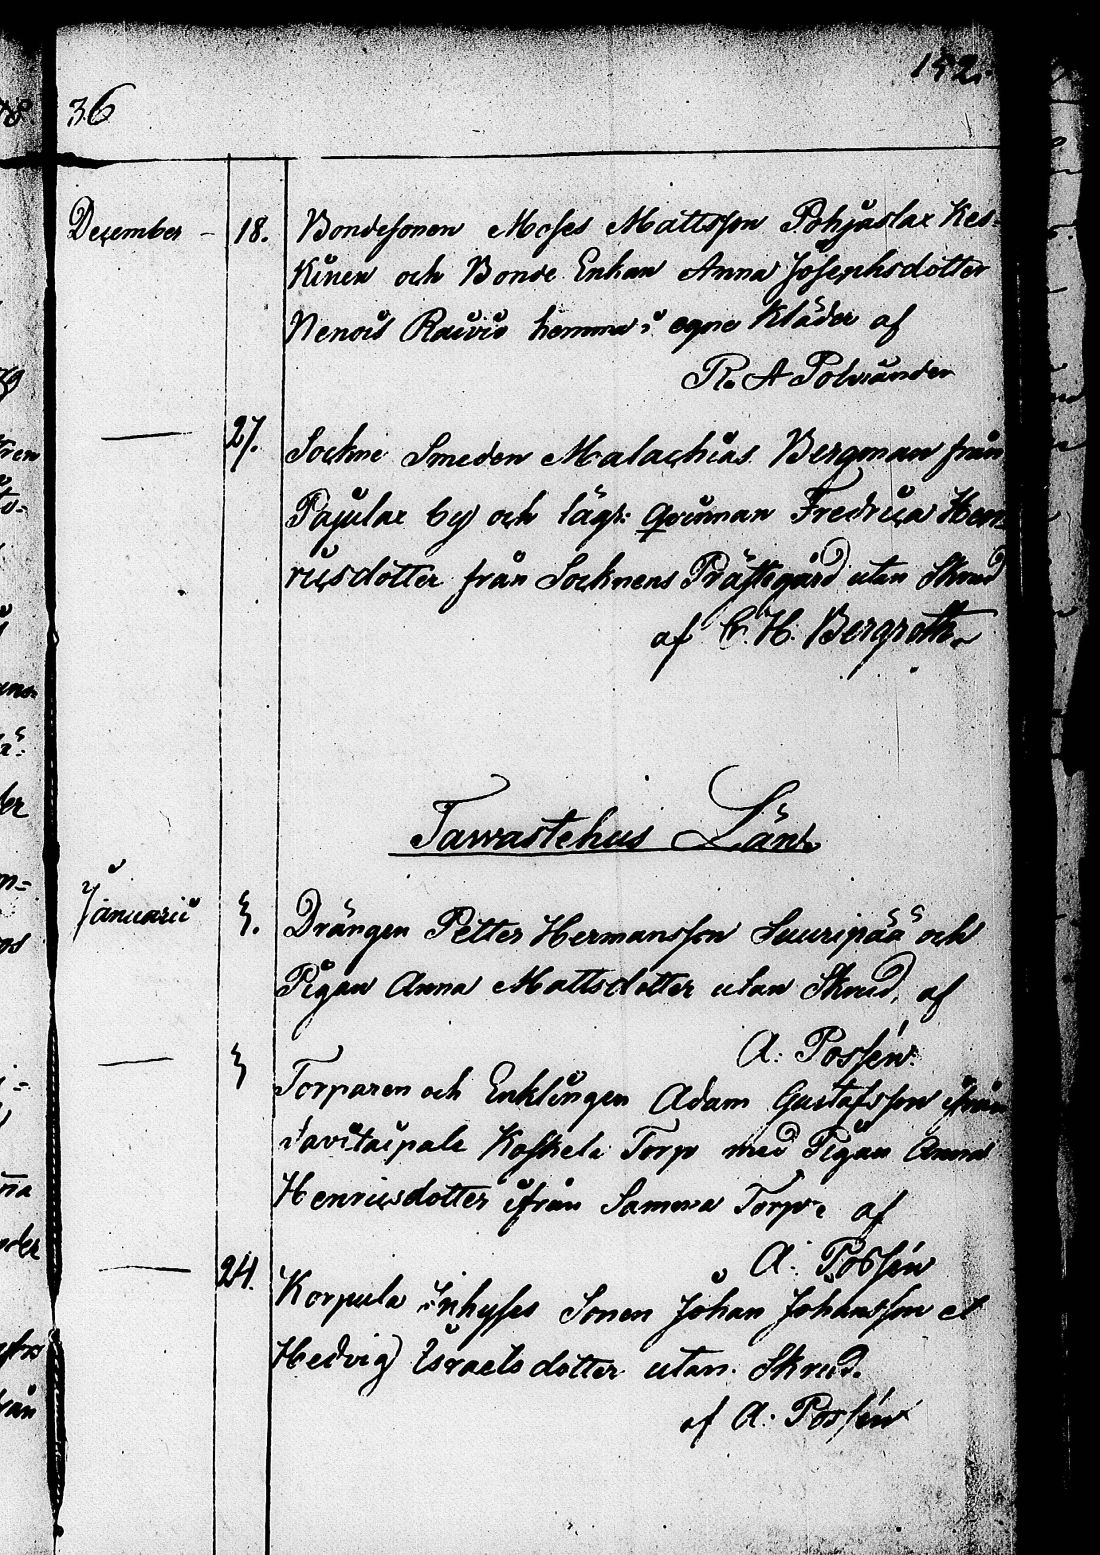 152.
36
December – 18. Bondesonen Moses Mattsson Pohjaslax Kes-
kinen och Bonde Enkan Anna Josephsdotter
Raivio hemma i egne Kläder af
R. A
— 27. Sockne Smeden Malachias Bergman från
Pajulax by och lägr: qvinnan Fredrica Hen
ricsdotter från Socknens Prästegård utan Skrud
af C. H. Bergroth.
Tavvastehus Län.
Januarii 3. Drängen Petter Hermansson Suuripää och
Pigan Anna Mattsdotter utan Skrud, af
A: Possén.
— 3 Torparen och Enklingen Adam Gustafsson ifrån
Savitaipale Koskela Torp med Pigan Anna
Henricsdotter ifrån Samma Torp af
A: Possén
— 24. Korpula Inhyses Sonen Johan Johansson et
Hedvig Israelsdotter utan Skrud.
af A: Possén